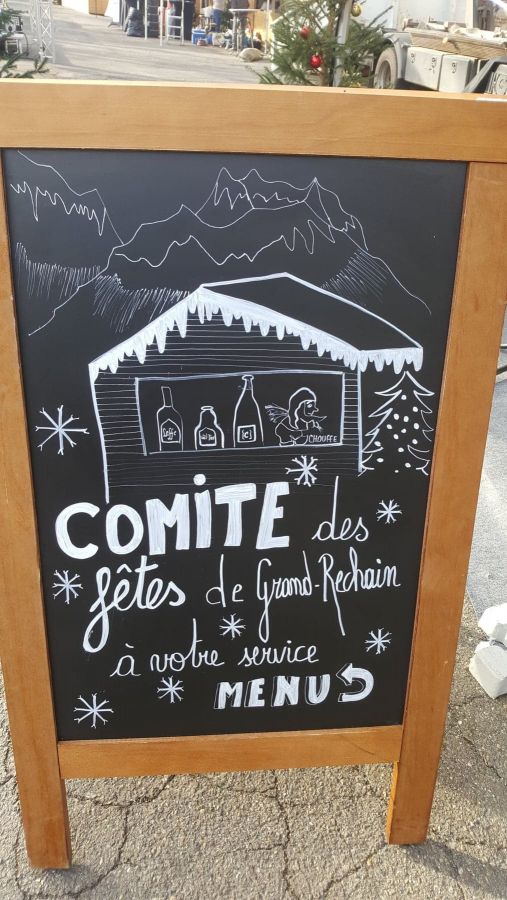 Leffe
[c]
CHOUFFE
COMITE des
fêtes de Grand-Rechain
à votre service
MENU